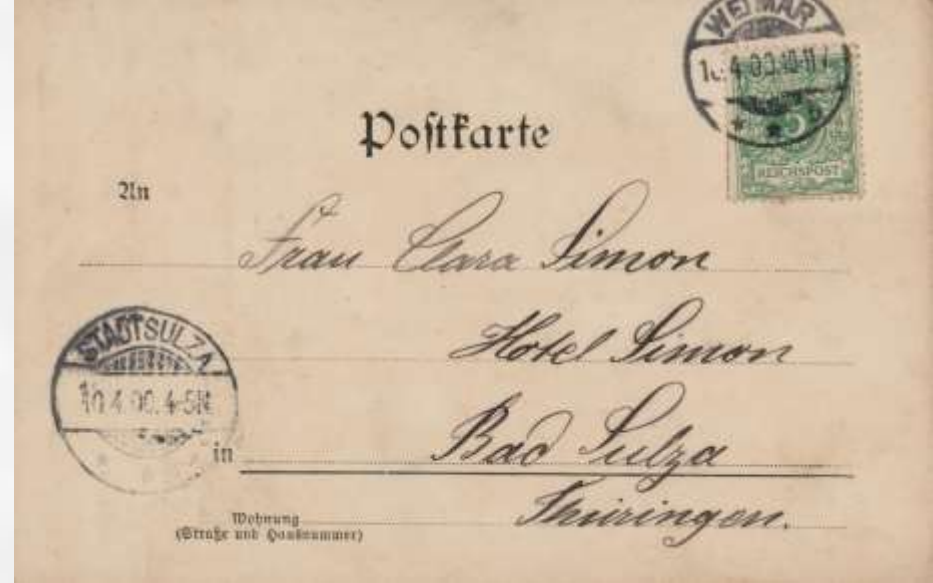 WEIMAR
4.00.10-11V
b
5
REICHSPOST
Postkarte
An
Frau Clara Simon
Hotel Simon
STADTSULZA
10.4.00.4-5N
in
Bad Sulza
Thüringen.
Wohnung
(Straße und Hausnummer)